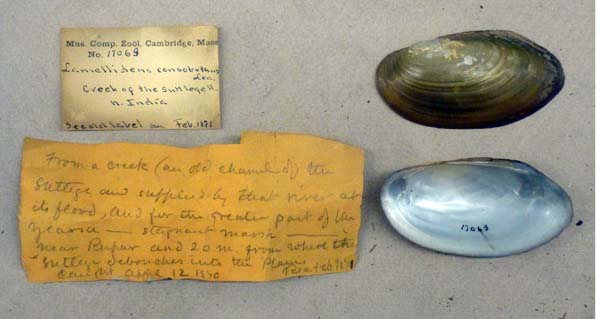 Mus. Comp. Zoöl. Cambridge, Mass
No. 17069
Lamellidens
Lea.
Creek of the Suttlege R.
n. India
See old label Feb. 1871
From a creek (an old channel of) the
Suttege and supplied by that river at
its flood, and for the greater part of the
year a — stagnant marsh —
near Rupar and 20 m. from where the
Suttege debouches into the Plains
Caught April 12 1870 Feb 1871
17069